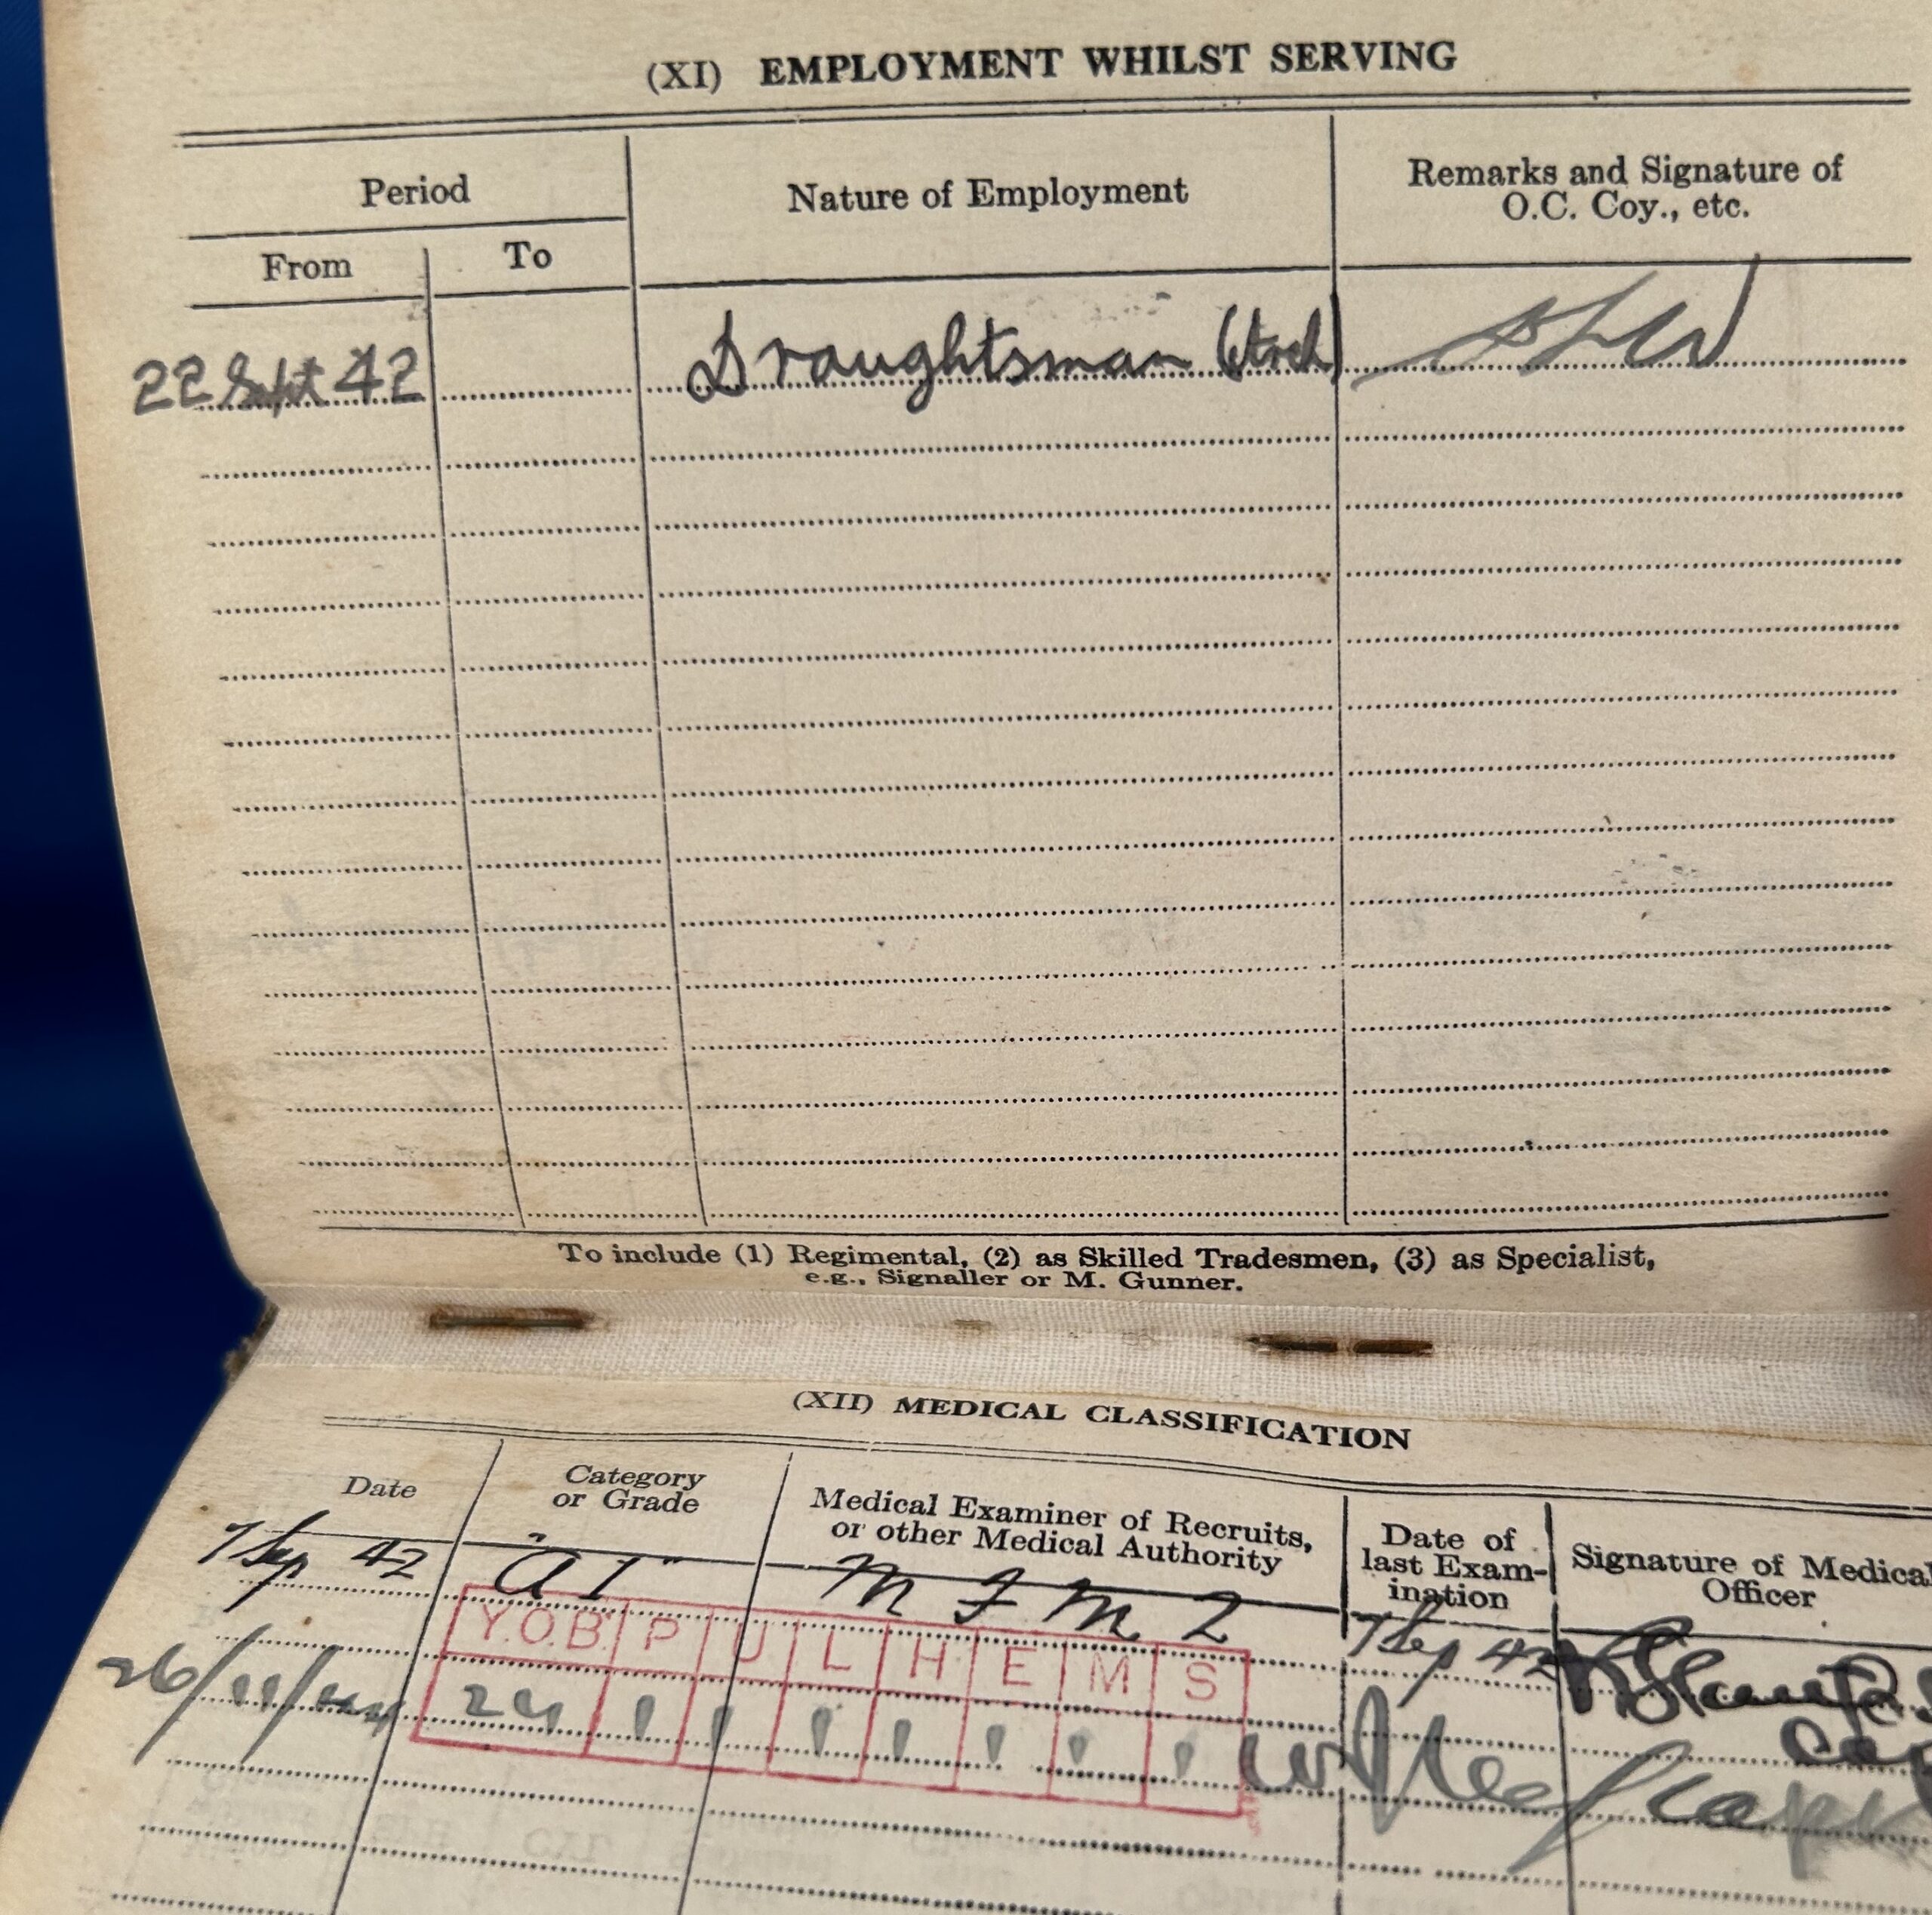 (XI) EMPLOYMENT WHILST SERVING
Period
Nature of Employment
Remarks and Signature of
O.C. Coy., etc.
From
To
22 Sept 42
Draughtsman
To include (1) Regimental, (2) as Skilled Tradesmen, (3) as Specialist,
e.g., Signaller or M. Gunner.
(XII) MEDICAL CLASSIFICATION
Date
Category
or Grade
Medical Examiner of Recruits,
or other Medical Authority
Date of
last Exam-
ination
Signature of Medical
Officer
7 Sep 42
"A1"
M F M 2
7 Sep 42
Y.O.B. P U L H E M S
26/11/44
24 1 1 1 1 1 1 1